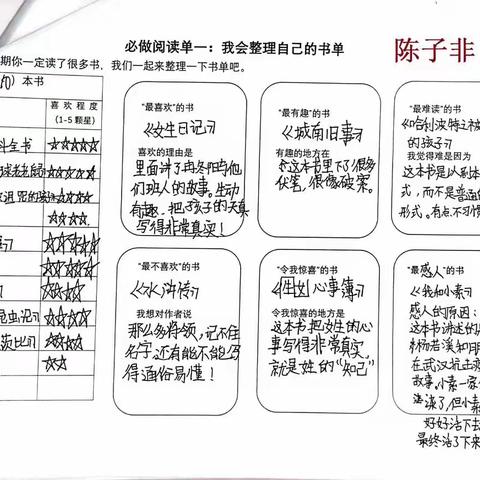 必做阅读单一：我会整理自己的书单
陈子非
期你一定读了很多书，我们一起来整理一下书单吧。
）本书
喜欢程度
(1-5颗星)
科全书 ☆☆☆☆☆
☆☆☆☆☆
☆☆☆☆☆
☆☆☆☆
☆☆☆☆☆
☆☆☆☆☆
☆☆☆☆
昆虫记》☆☆☆☆
☆☆☆
☆☆
“最喜欢”的书
《女生日记》
喜欢的理由是
里面讲了冉冬阳与他
们班人的故事。生动
有趣，把孩子的天真
写得非常真实！
“最有趣”的书
《城南旧事》
有趣的地方在
这本书里下了很多
伏笔，很像破案。
“最难读”的书
《哈利波特之被
的孩子》
我觉得难是因为
这本书是以剧本
式，而不是普通的
形式。有点不习惯
“最不喜欢”的书
《水浒传》
我想对作者说
那么多将领，记不住
名字，还有能不能写
得通俗易懂！
“令我惊喜”的书
心事簿》
令我惊喜的地方是
这本书把女生的心
事写得非常真实，
就是姓的“知己”
“最感人”的书
《我和小素》
感人的原因：
这本书讲述的
林杨若溪和
在武汉抗
故事。小素一家
但小素
好好活下去
最终活了下来